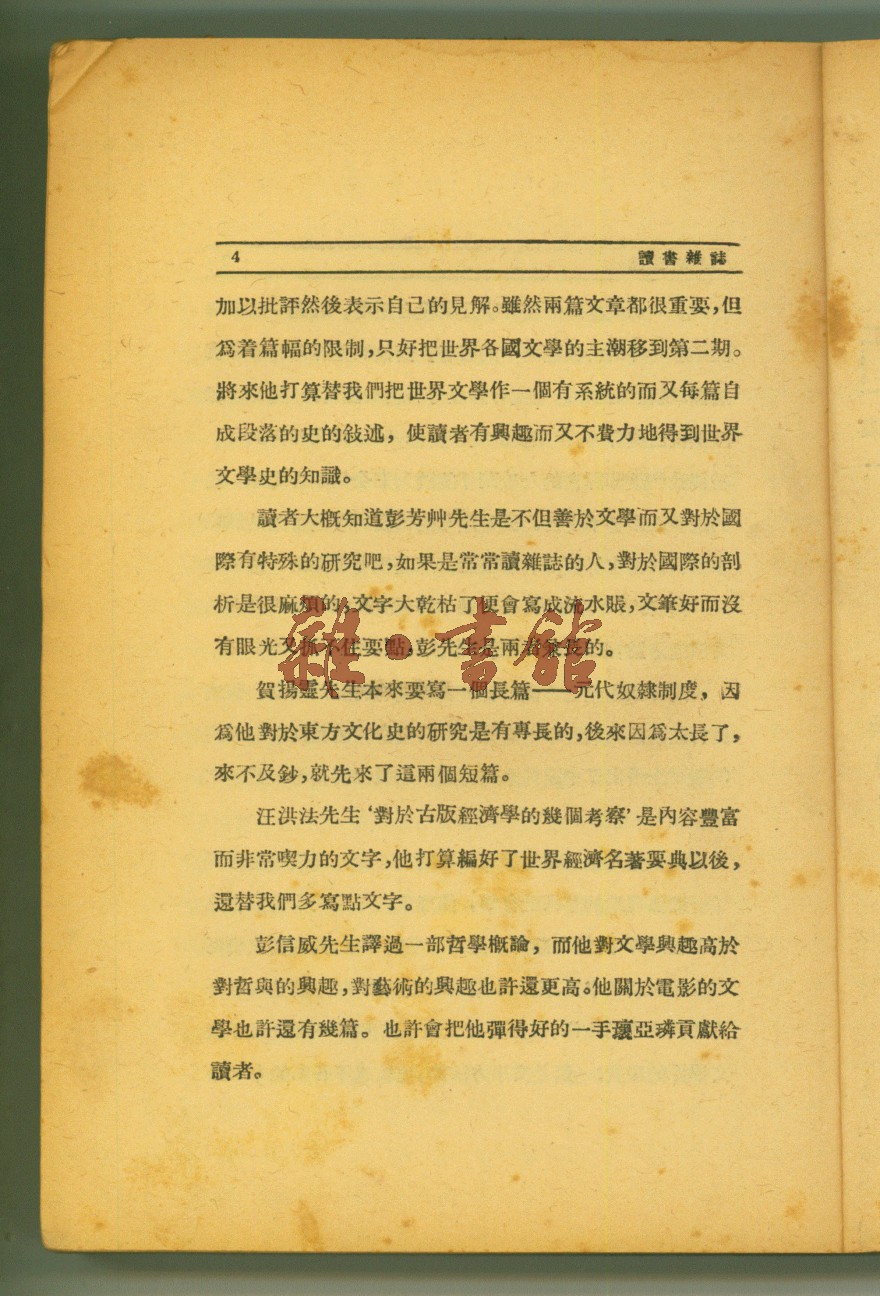 4 讀書雜誌
加以批評然後表示自己的見解。雖然兩篇文章都很重要,但
爲着篇幅的限制,只好把世界各國文學的主潮移到第二期。
將來他打算替我們把世界文學作一個有系統的而又每篇自
成段落的史的敍述,使讀者有興趣而又不費力地得到世界
文學史的知識。
讀者大槪知道彭芳艸先生是不但善於文學而又對於國
際有特殊的研究吧,如果是常常讀雜誌的人,對於國際的剖
析是很麻煩的,文字大乾枯了便會寫成流水賬,文筆好而沒
有眼光又抓不住要點,彭先生是兩者兼長的。
賀揚靈先生本來要寫一個長篇——元代奴隸制度,因
爲他對於東方文化史的研究是有專長的,後來因爲太長了,
來不及鈔,就先來了這兩個短篇。
汪洪法先生‘對於古版經濟學的幾個考察’是內容豐富
而非常喫力的文字,他打算編好了世界經濟名著要典以後,
還替我們多寫點文字。
彭信威先生譯過一部哲學槪論,而他對文學興趣高於
對哲與的興趣,對藝術的興趣也許還更高。他關於電影的文
學也許還有幾篇。也許會把他彈得好的一手瓖亞璘貢獻給
讀者。
雜·書館